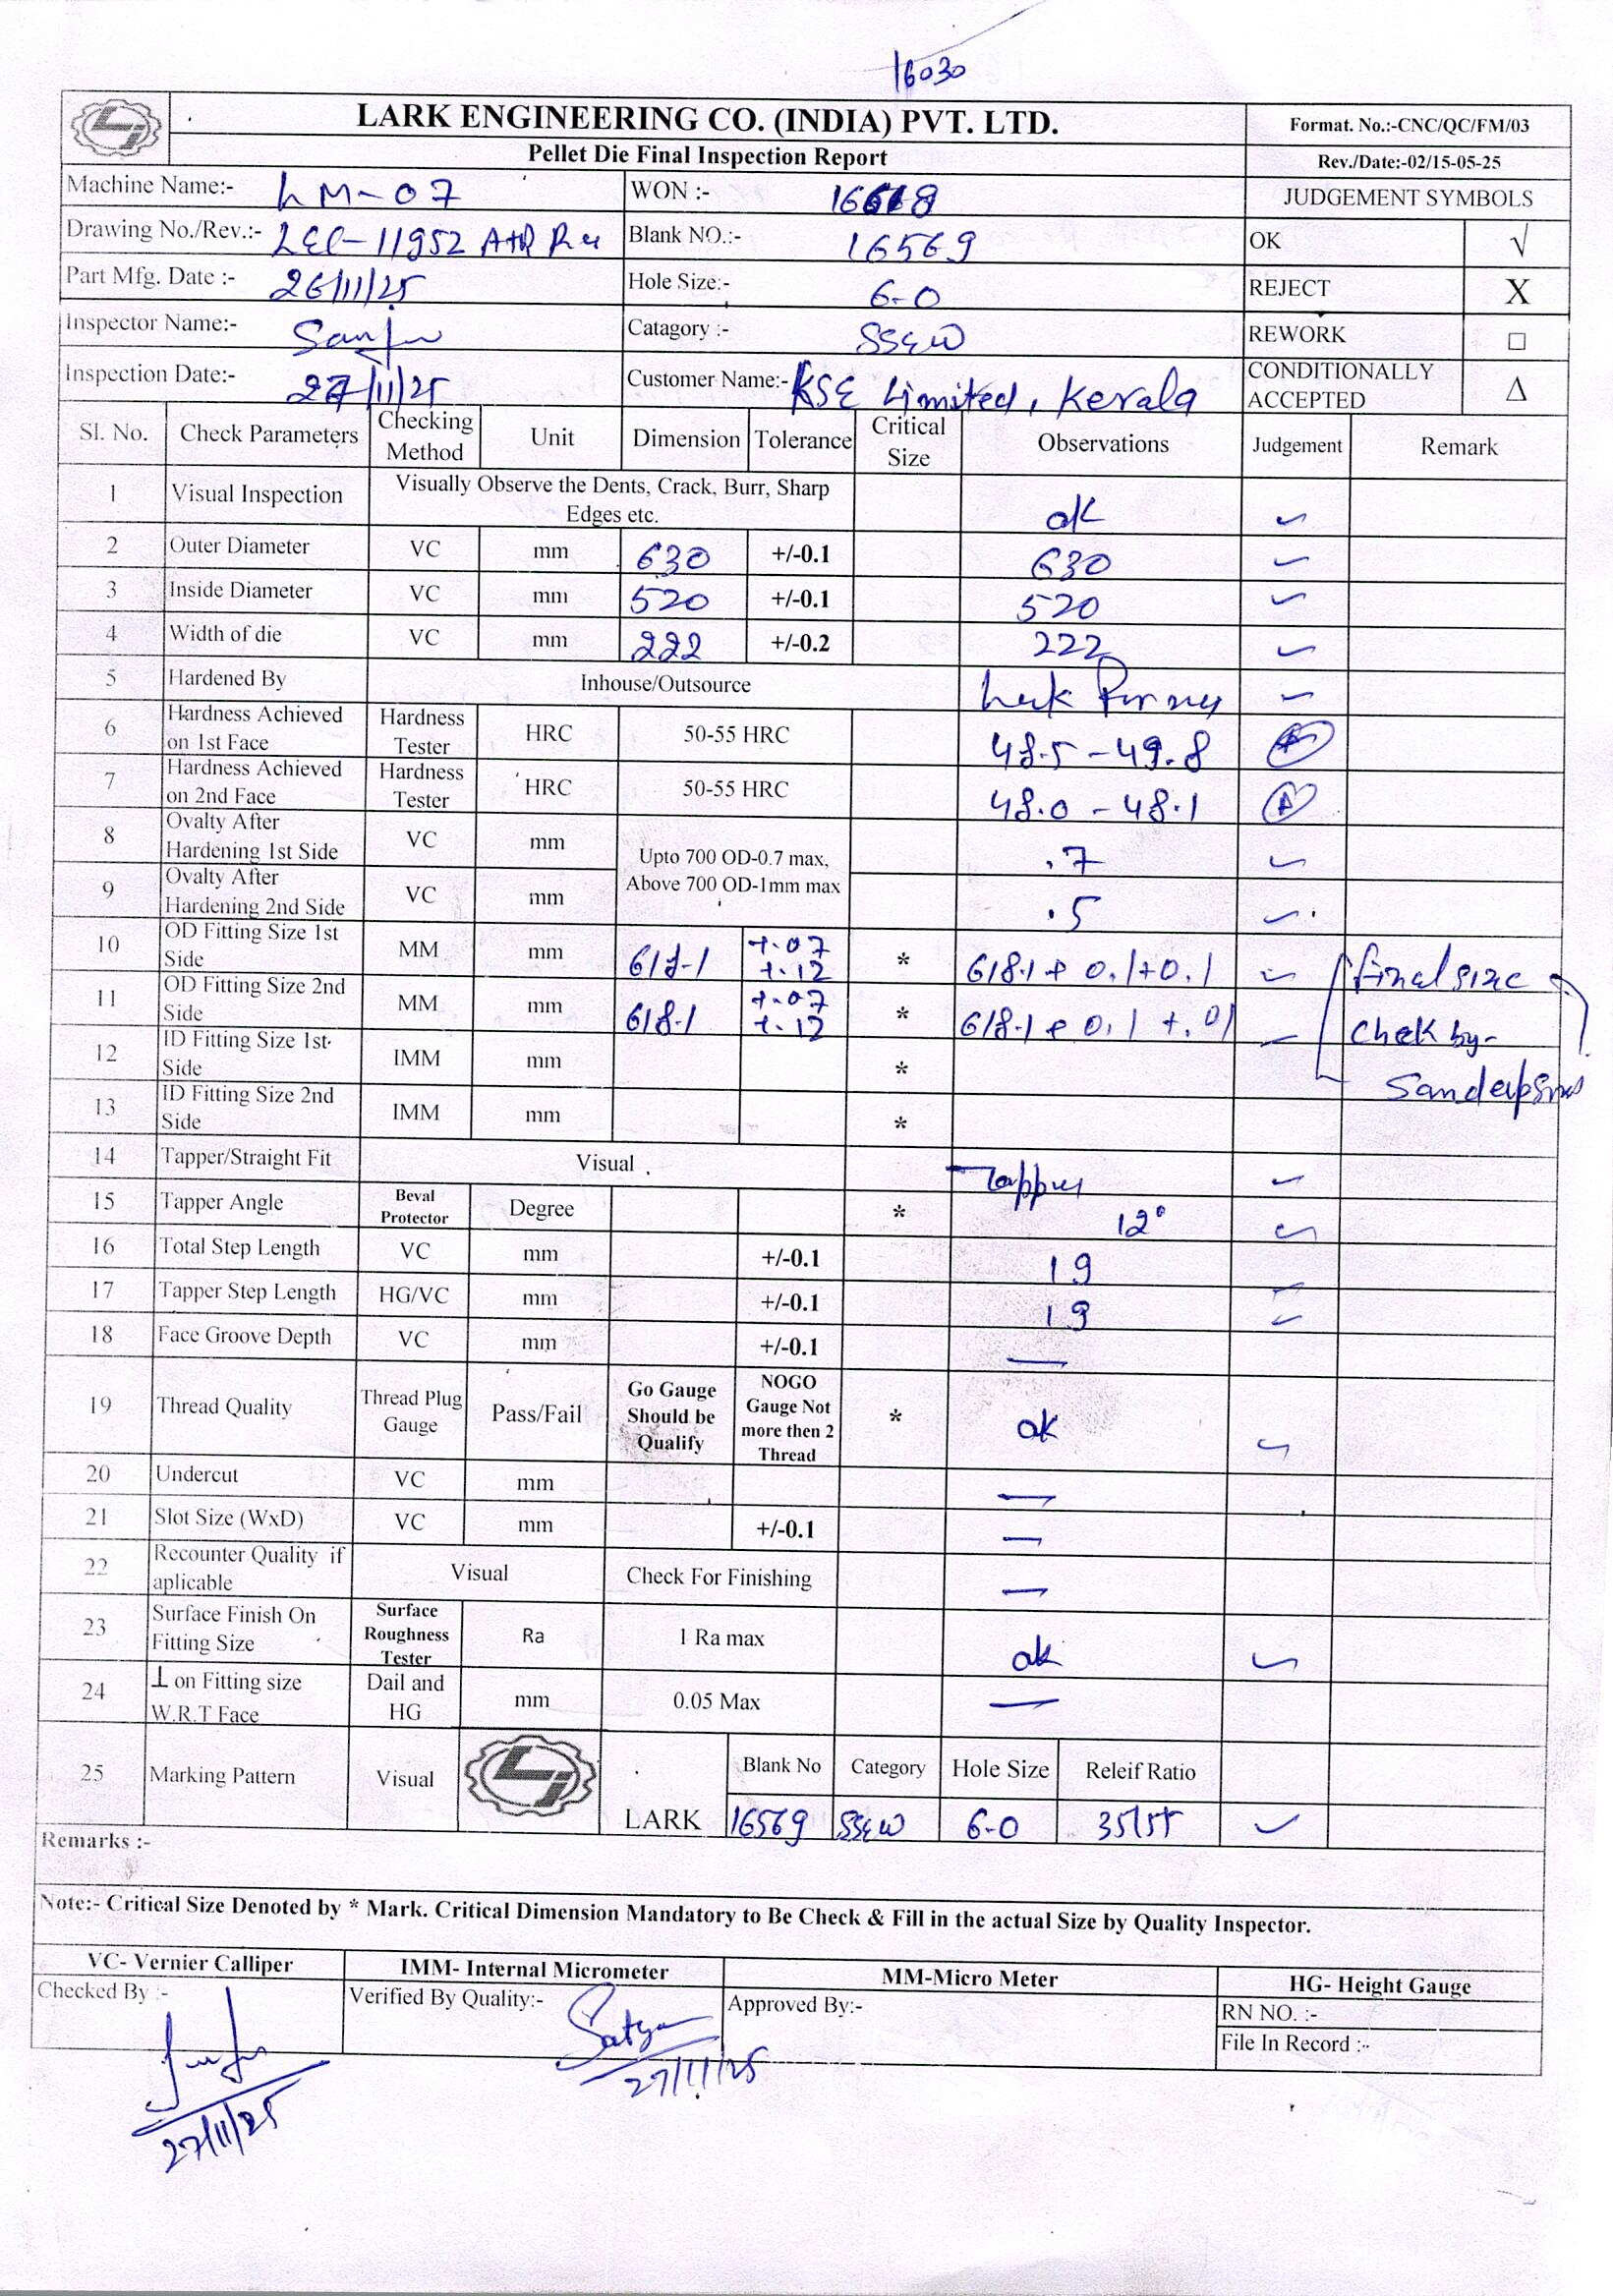 16030
LARK ENGINEERING CO. (INDIA) PVT. LTD.
Format. No.:-CNC/QC/FM/03
Pellet Die Final Inspection Report
Rev./Date:-02/15-05-25
Machine Name:- LM-07 WON :- 16668 JUDGEMENT SYMBOLS
Drawing No./Rev.:- LEC-11952 Blank NO.:- 16569 OK √
Part Mfg. Date :- 26/11/25 Hole Size:- 6-0 REJECT X
Inspector Name:- Catagory :- SS&W REWORK □
Inspection Date:- 27/11/25 Customer Name:- KSE Limited, Kerala CONDITIONALLY ACCEPTED Δ
Sl. No. Check Parameters Checking Method Unit Dimension Tolerance Critical Size Observations Judgement Remark
1 Visual Inspection Visually Observe the Dents, Crack, Burr, Sharp Edges etc. ok ✓
2 Outer Diameter VC mm 630 +/-0.1 630 ✓
3 Inside Diameter VC mm 520 +/-0.1 520 ✓
4 Width of die VC mm 222 +/-0.2 222 ✓
5 Hardened By Inhouse/Outsource ✓
6 Hardness Achieved on 1st Face Hardness Tester HRC 50-55 HRC 48.5 - 49.8
7 Hardness Achieved on 2nd Face Hardness Tester HRC 50-55 HRC 48.0 - 48.1
8 Ovalty After Hardening 1st Side VC mm Upto 700 OD-0.7 max, Above 700 OD-1mm max .7 ✓
9 Ovalty After Hardening 2nd Side VC mm .5 ✓
10 OD Fitting Size 1st Side MM mm +.07 +.12 * 618.1 + 0.1+0.1 ✓ final size
11 OD Fitting Size 2nd Side MM mm 618.1 +.07 +.12 * 618.1 ✓ Chek by-
12 ID Fitting Size 1st Side IMM mm *
13 ID Fitting Size 2nd Side IMM mm *
14 Tapper/Straight Fit Visual Tapper ✓
15 Tapper Angle Beval Protector Degree * 12° ✓
16 Total Step Length VC mm +/-0.1 19 ✓
17 Tapper Step Length HG/VC mm +/-0.1 19 ✓
18 Face Groove Depth VC mm +/-0.1 —
19 Thread Quality Thread Plug Gauge Pass/Fail Go Gauge Should be Qualify NOGO Gauge Not more then 2 Thread * ok ✓
20 Undercut VC mm —
21 Slot Size (WxD) VC mm +/-0.1 —
22 Recounter Quality if aplicable Visual Check For Finishing —
23 Surface Finish On Fitting Size Surface Roughness Tester Ra 1 Ra max ok ✓
24 ⊥ on Fitting size W.R.T Face Dail and HG mm 0.05 Max —
25 Marking Pattern Visual LARK Blank No Category Hole Size Releif Ratio
16569 SS&W 6-0 ✓
Remarks :-
Note:- Critical Size Denoted by * Mark. Critical Dimension Mandatory to Be Check & Fill in the actual Size by Quality Inspector.
VC- Vernier Calliper IMM- Internal Micrometer MM-Micro Meter HG- Height Gauge
Checked By :- Verified By Quality:- Satya Approved By:- RN NO. :-
File In Record :-
27/11/25
27/11/25